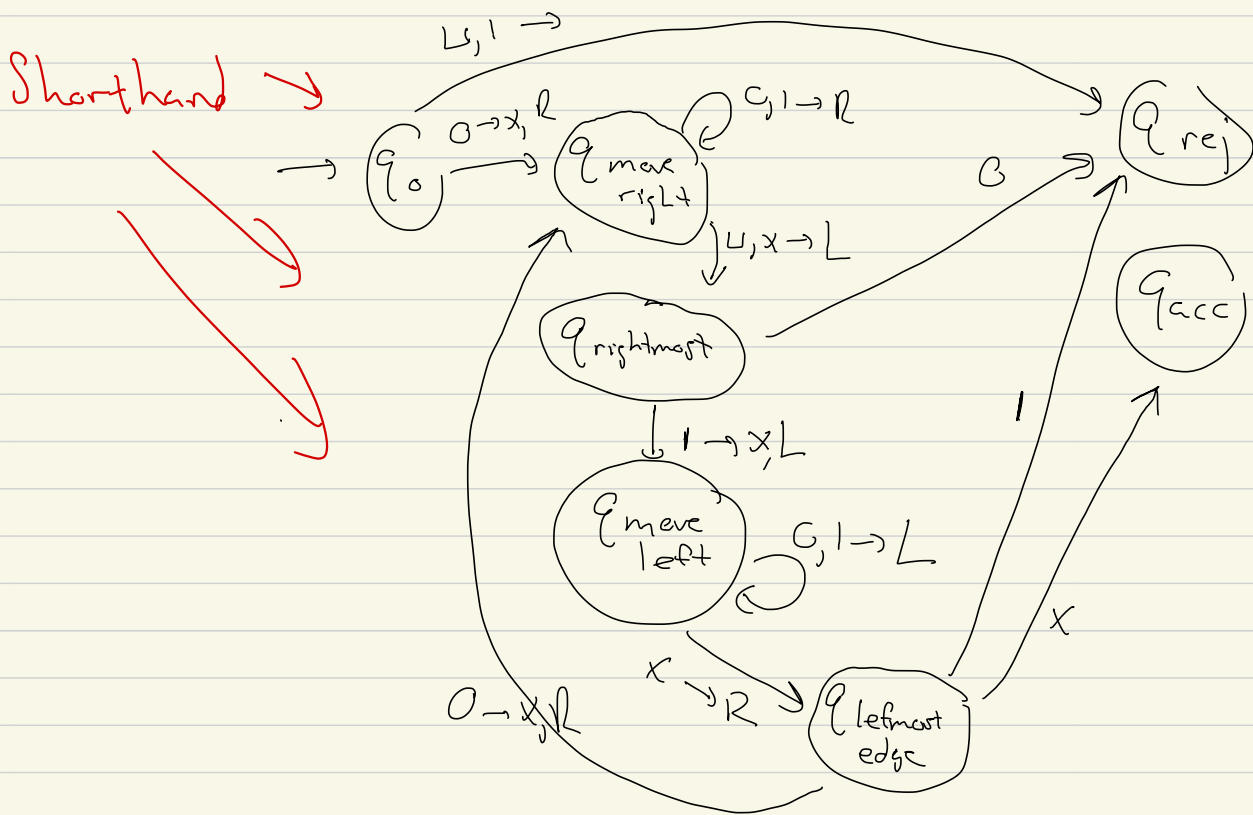 ⊔, 1 →
Shorthand
q₀
0 → x, R
q move
right
0, 1 → R
q rej
0
⊔, x → L
q acc
q rightmost
1
1 → x, L
q move
left
0, 1 → L
x
x → R
0 → x, R
q leftmost
edge